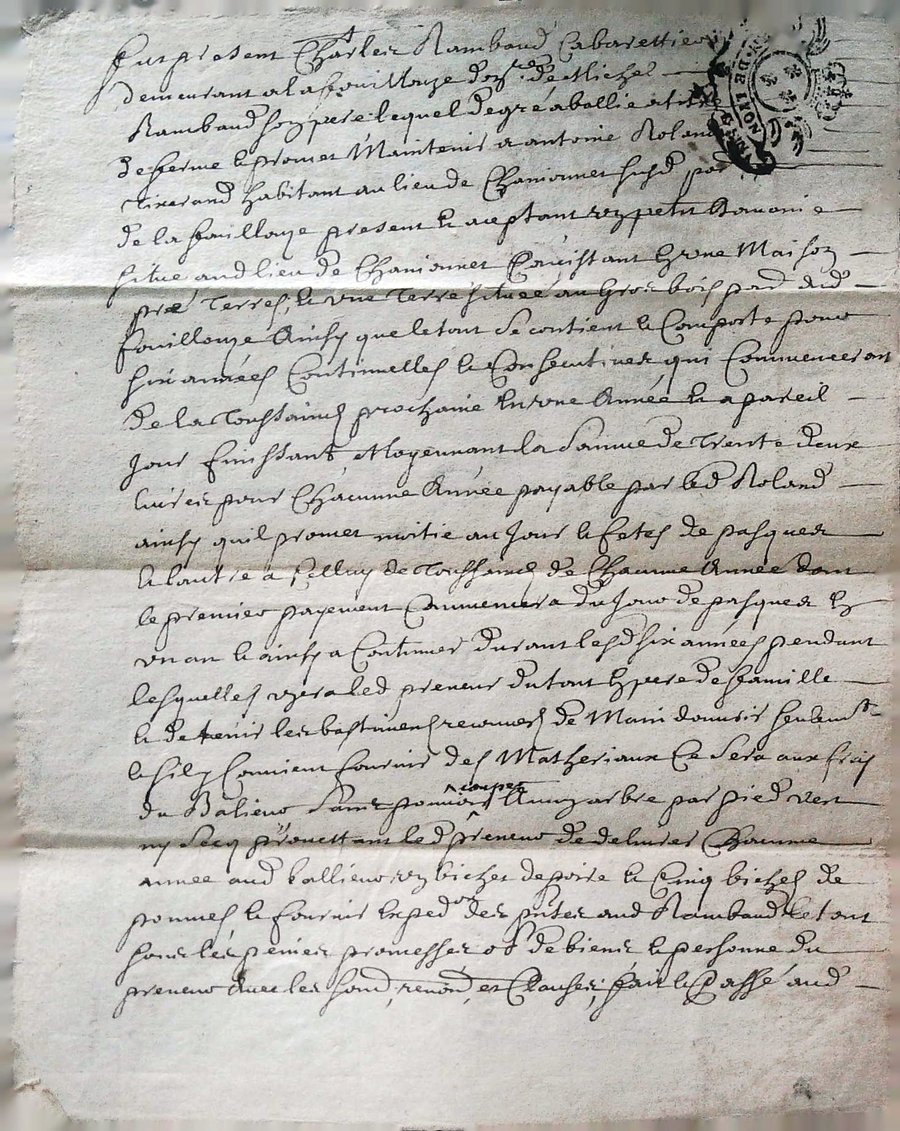 Fut present Charles Rambaud Cabarettier
demeurant a la fouillouze de Michel
Rambaud son pere lequel de gré a ballié a titre
de ferme et promet Maintenir a antoine Roland
habitant au lieu de Chanionnet par
de la fouillouze present et aceptant un petit domonie
situe aud lieu de Chanionnet Concistant en une Maison
pré Terres, et une Terre situéé au Gros bois par dud
fouillouze Ainsy que le tout se contient et Comporte pour
six années Continnelles et Consecutives qui Commenceront
de la Toussaincts prochaine en une Année et a pareil
jour finissants, et Moyennant la Somme de Trente deux
livres pour Chacunne Année payable par led Roland
ainsy quil promet moitie au Jour et fetes de pasques
et lautre a celluy de Toussaincts de Chacune Année dont
le premier payement Commencera du Jour de pasques en
un an et ainsy a Continuer durant lesd six annees pendant
lesquelles uzera led preneur du tout en pere de famille
et detenir les bastimens recouverts de Main douvris seulemt
et sil y Convient fournir des Matheriaux Ce Sera aux frais
du Balieur Sans pouvoir couper Aucun arbre par pied vert
ny Secq promettant led preneur de delivrer Chacune
année aud ballieur un bichet de poire et Cinq bichets de
pommes et fournir expedon des pntes aud Rambaud le tout
sous les peines promesses ob de biens et personne du
preneur Avec les soumd, renond, et Clauses, fait et Passé aud